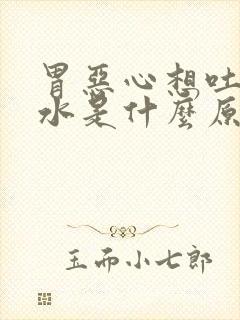 胃惡心想吐
水是什麼原
玉而小七郎